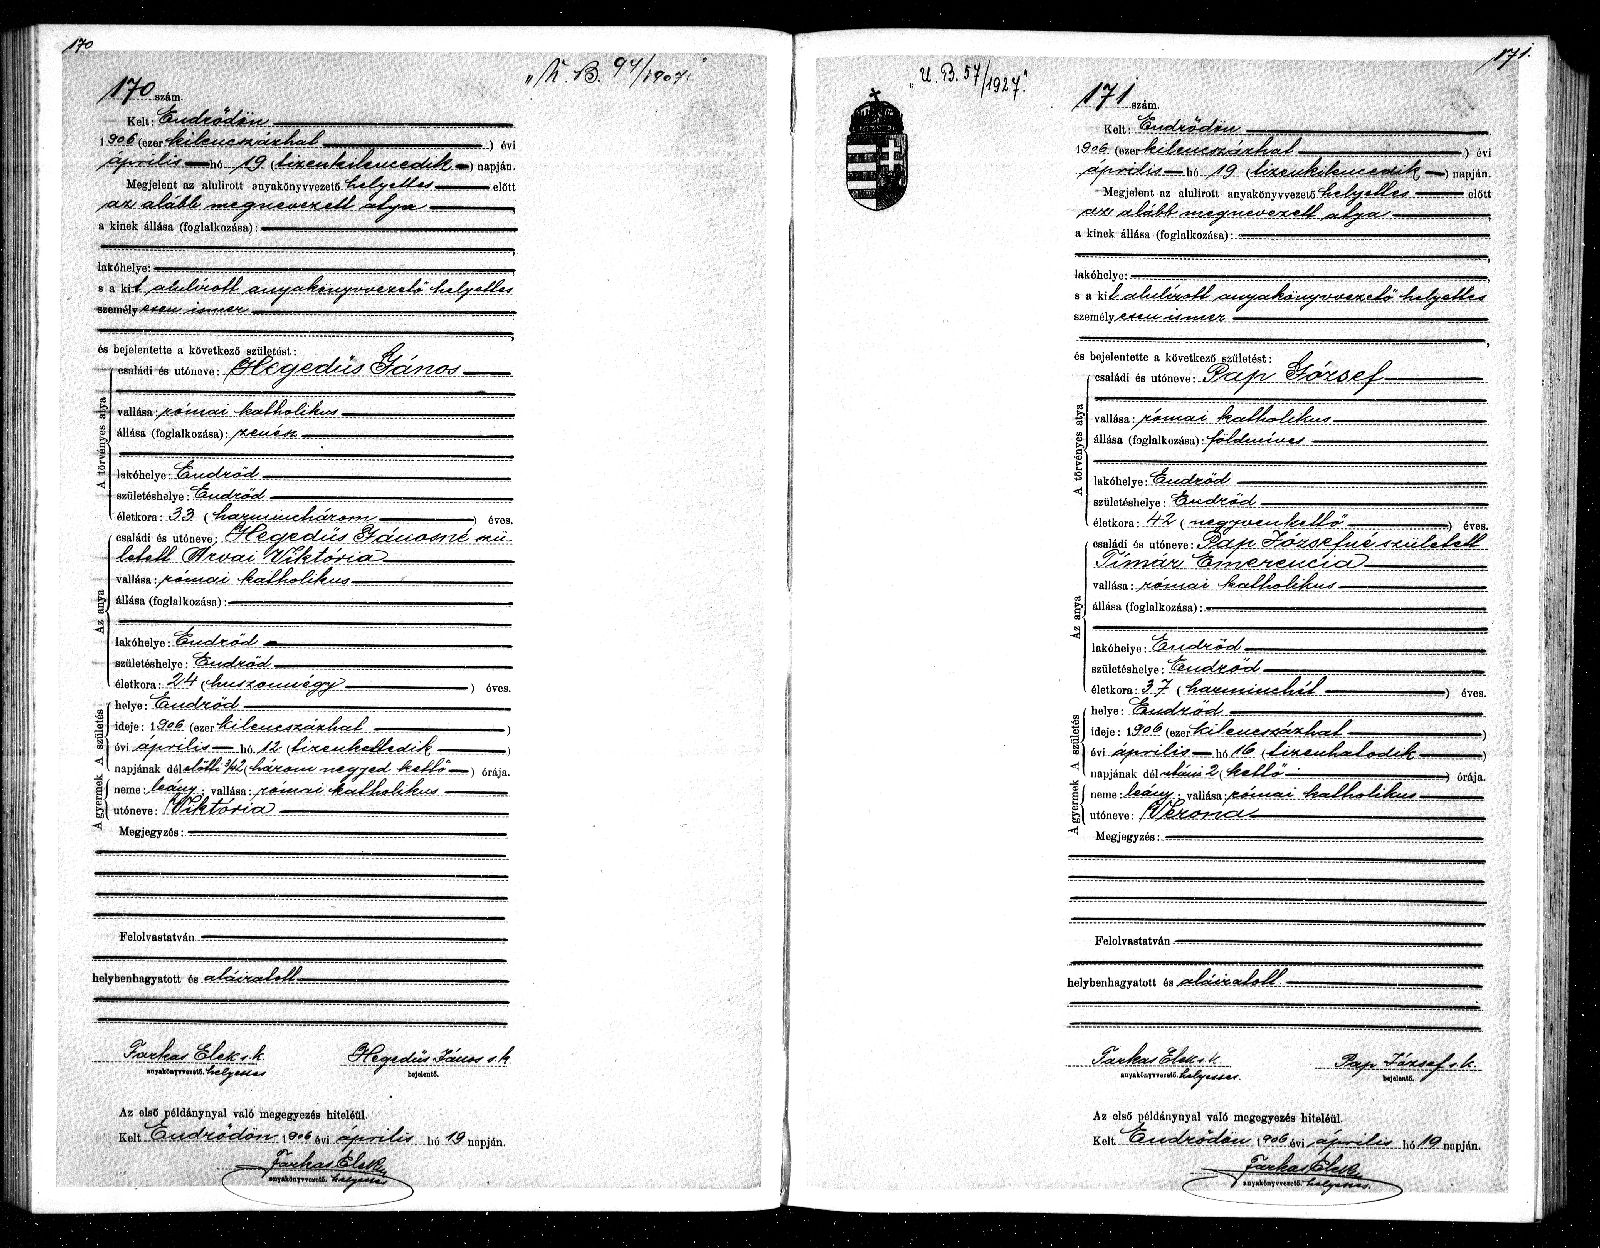 170
"U. B. 94/1907."
170 szám.
Kelt: Endrődön
1906 (ezer kilencszázhat ) évi
április hó 19 (tizenkilencedik ) napján.
Megjelent az alulirott anyakönyvvezető helyettes előtt
az alább megnevezett atya
a kinek állása (foglalkozása):
lakóhelye:
s a kit alulirott anyakönyvvezető helyettes
személyesen ismer
és bejelentette a következő születést:
A törvényes atya
családi és utóneve: Hegedüs János
vallása: római katholikus
állása (foglalkozása): zenész
lakóhelye: Endrőd
születéshelye: Endrőd
életkora: 33 (harminchárom ) éves.
Az anya
családi és utóneve: Hegedüs Jánosné szü-
letett Arvai Viktória
vallása: római katholikus
állása (foglalkozása):
lakóhelye: Endrőd
születéshelye: Endrőd
életkora: 24 (huszonnégy ) éves.
A születés
helye: Endrőd
ideje: 1906 (ezer kilencszázhat )
évi április hó 12 (tizenkettedik )
napjának dél előtti 3/42 (három negyed kettő ) órája.
A gyermek
neme: leány; vallása: római katholikus
utóneve: Viktória
Megjegyzés:
Felolvastatván
helybenhagyatott és aláiratott
Farkas Elek s.k. Hegedüs János s.k.
anyakönyvvezető. helyettes bejelentő.
Az első példánynyal való megegyezés hiteléül.
Kelt Endrődön 1906 évi április hó 19 napján.
Farkas Elek
anyakönyvvezető. helyettes
171.
"U. B. 57/1927."
171 szám.
Kelt: Endrődön
1906 (ezer kilencszázhat ) évi
április hó 19 (tizenkilencedik ) napján.
Megjelent az alulirott anyakönyvvezető helyettes előtt
az alább megnevezett atya
a kinek állása (foglalkozása):
lakóhelye:
s a kit alulirott anyakönyvvezető helyettes
személyesen ismer
és bejelentette a következő születést:
A törvényes atya
családi és utóneve: Pap József
vallása: római katholikus
állása (foglalkozása): földmíves
lakóhelye: Endrőd
születéshelye: Endrőd
életkora: 42 (negyvenkettő ) éves.
Az anya
családi és utóneve: Pap Józsefné született
Tímár Emerencia
vallása: római katholikus
állása (foglalkozása):
lakóhelye: Endrőd
születéshelye: Endrőd
életkora: 37 (harminchét ) éves.
A születés
helye: Endrőd
ideje: 1906 (ezer kilencszázhat )
évi április hó 16 (tizenhatodik )
napjának dél utáni 2 (kettő ) órája.
A gyermek
neme: leány; vallása: római katholikus
utóneve: Verona
Megjegyzés:
Felolvastatván
helybenhagyatott és aláiratott
Farkas Elek s.k. Pap József s.k.
anyakönyvvezető. helyettes. bejelentő.
Az első példánynyal való megegyezés hiteléül.
Kelt Endrődön 1906 évi április hó 19 napján.
Farkas Elek
anyakönyvvezető. helyettes.